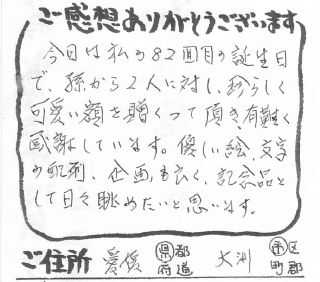 ご感想ありがとうございます
今日は私の82回目の誕生日
で、孫から2人に対し、珍らしく
可愛い額を贈くって頂き有難く
感謝しています。優しい絵、文字
の配列、企画も良く、記念品と
して日々眺めたいと思います。
ご住所 愛媛 県都府道 大洲 市区町郡